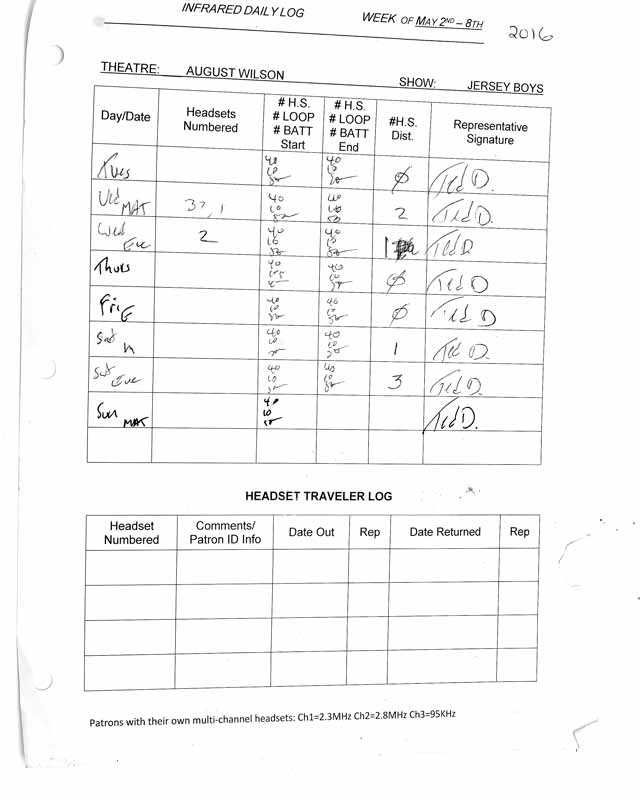 INFRARED DAILY LOG WEEK OF MAY 2ND – 8TH 2016
THEATRE: AUGUST WILSON SHOW: JERSEY BOYS
Day/Date Headsets Numbered # H.S. # LOOP # BATT Start # H.S. # LOOP # BATT End #H.S. Dist. Representative Signature
Tues 40 10 50 40 10 50 0 Ted D.
Wed MAT 37, 1 40 10 50 40 10 50 2 Ted D.
Wed Eve 2 40 10 50 40 10 50 1 Ted D
Thurs 40 40 10 50 0 Ted D
Fri E 40 10 50 40 10 50 0 Ted D
Sat M 40 10 50 40 10 50 1 Ted D.
Sat Eve 40 10 50 40 10 50 3 Ted D.
Sun MAT 40 10 50 Ted D.
HEADSET TRAVELER LOG
Headset Numbered Comments/ Patron ID Info Date Out Rep Date Returned Rep
Patrons with their own multi-channel headsets: Ch1=2.3MHz Ch2=2.8MHz Ch3=95KHz